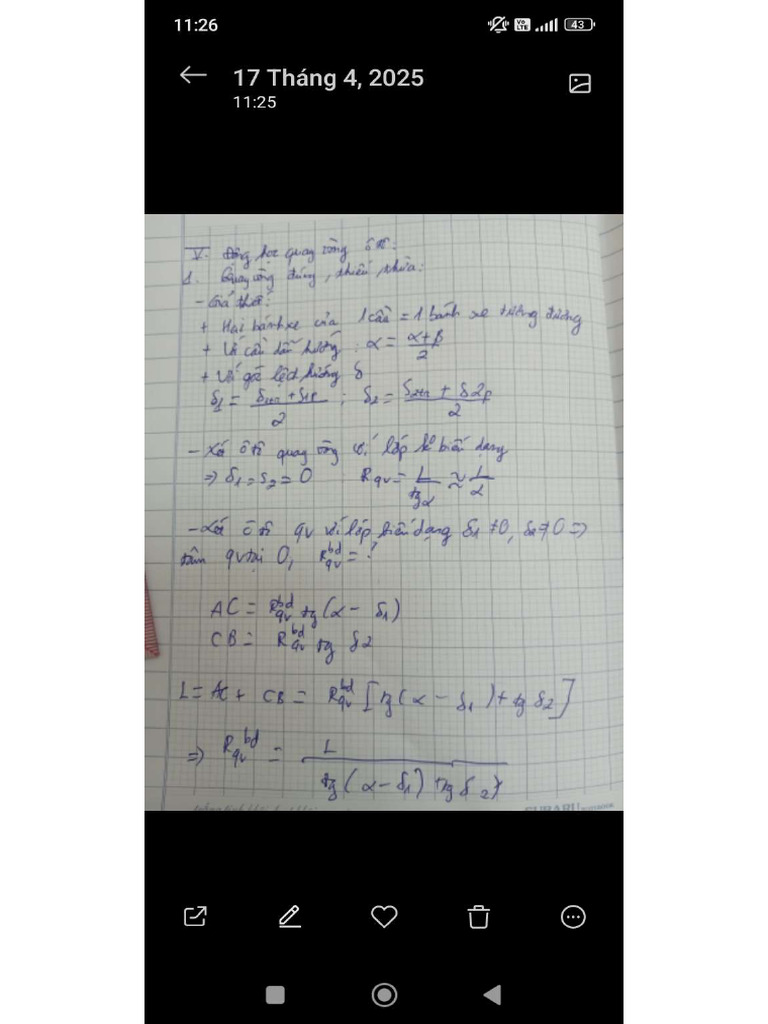 11:26
43
17 Tháng 4, 2025
11:25
V. Động học quay vòng ô tô:
1. Quay vòng đúng, thiếu, thừa:
- Giả thiết:
+ Hai bánh xe của 1 cầu = 1 bánh xe tương đương
+ Với cầu dẫn hướng: α = α+β / 2
+ Với góc lệch hướng δ
δ1 = δ1tr + δ1p / 2 ; δ2 = δ2tr + δ2p / 2
- Xét ô tô quay vòng với lốp k biến dạng
⇒ δ1 = δ2 = 0 Rqv = L / tgα ≈ L / α
- Xét ô tô qv với lốp biến dạng δ1 ≠ 0, δ2 ≠ 0 ⇒
tâm qv tại O, Rqv^bd = ?
AC = Rqv^bd tg(α - δ1)
CB = Rqv^bd tg δ2
L = AC + CB = Rqv^bd [tg(α - δ1) + tg δ2]
⇒ Rqv^bd = L / tg(α - δ1) + tg δ2
SUBARU